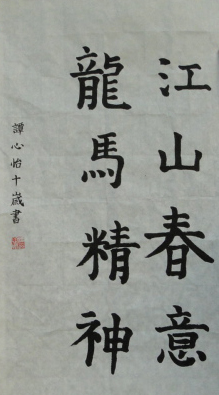 江山春意
龍馬精神
譚心怡十歲書